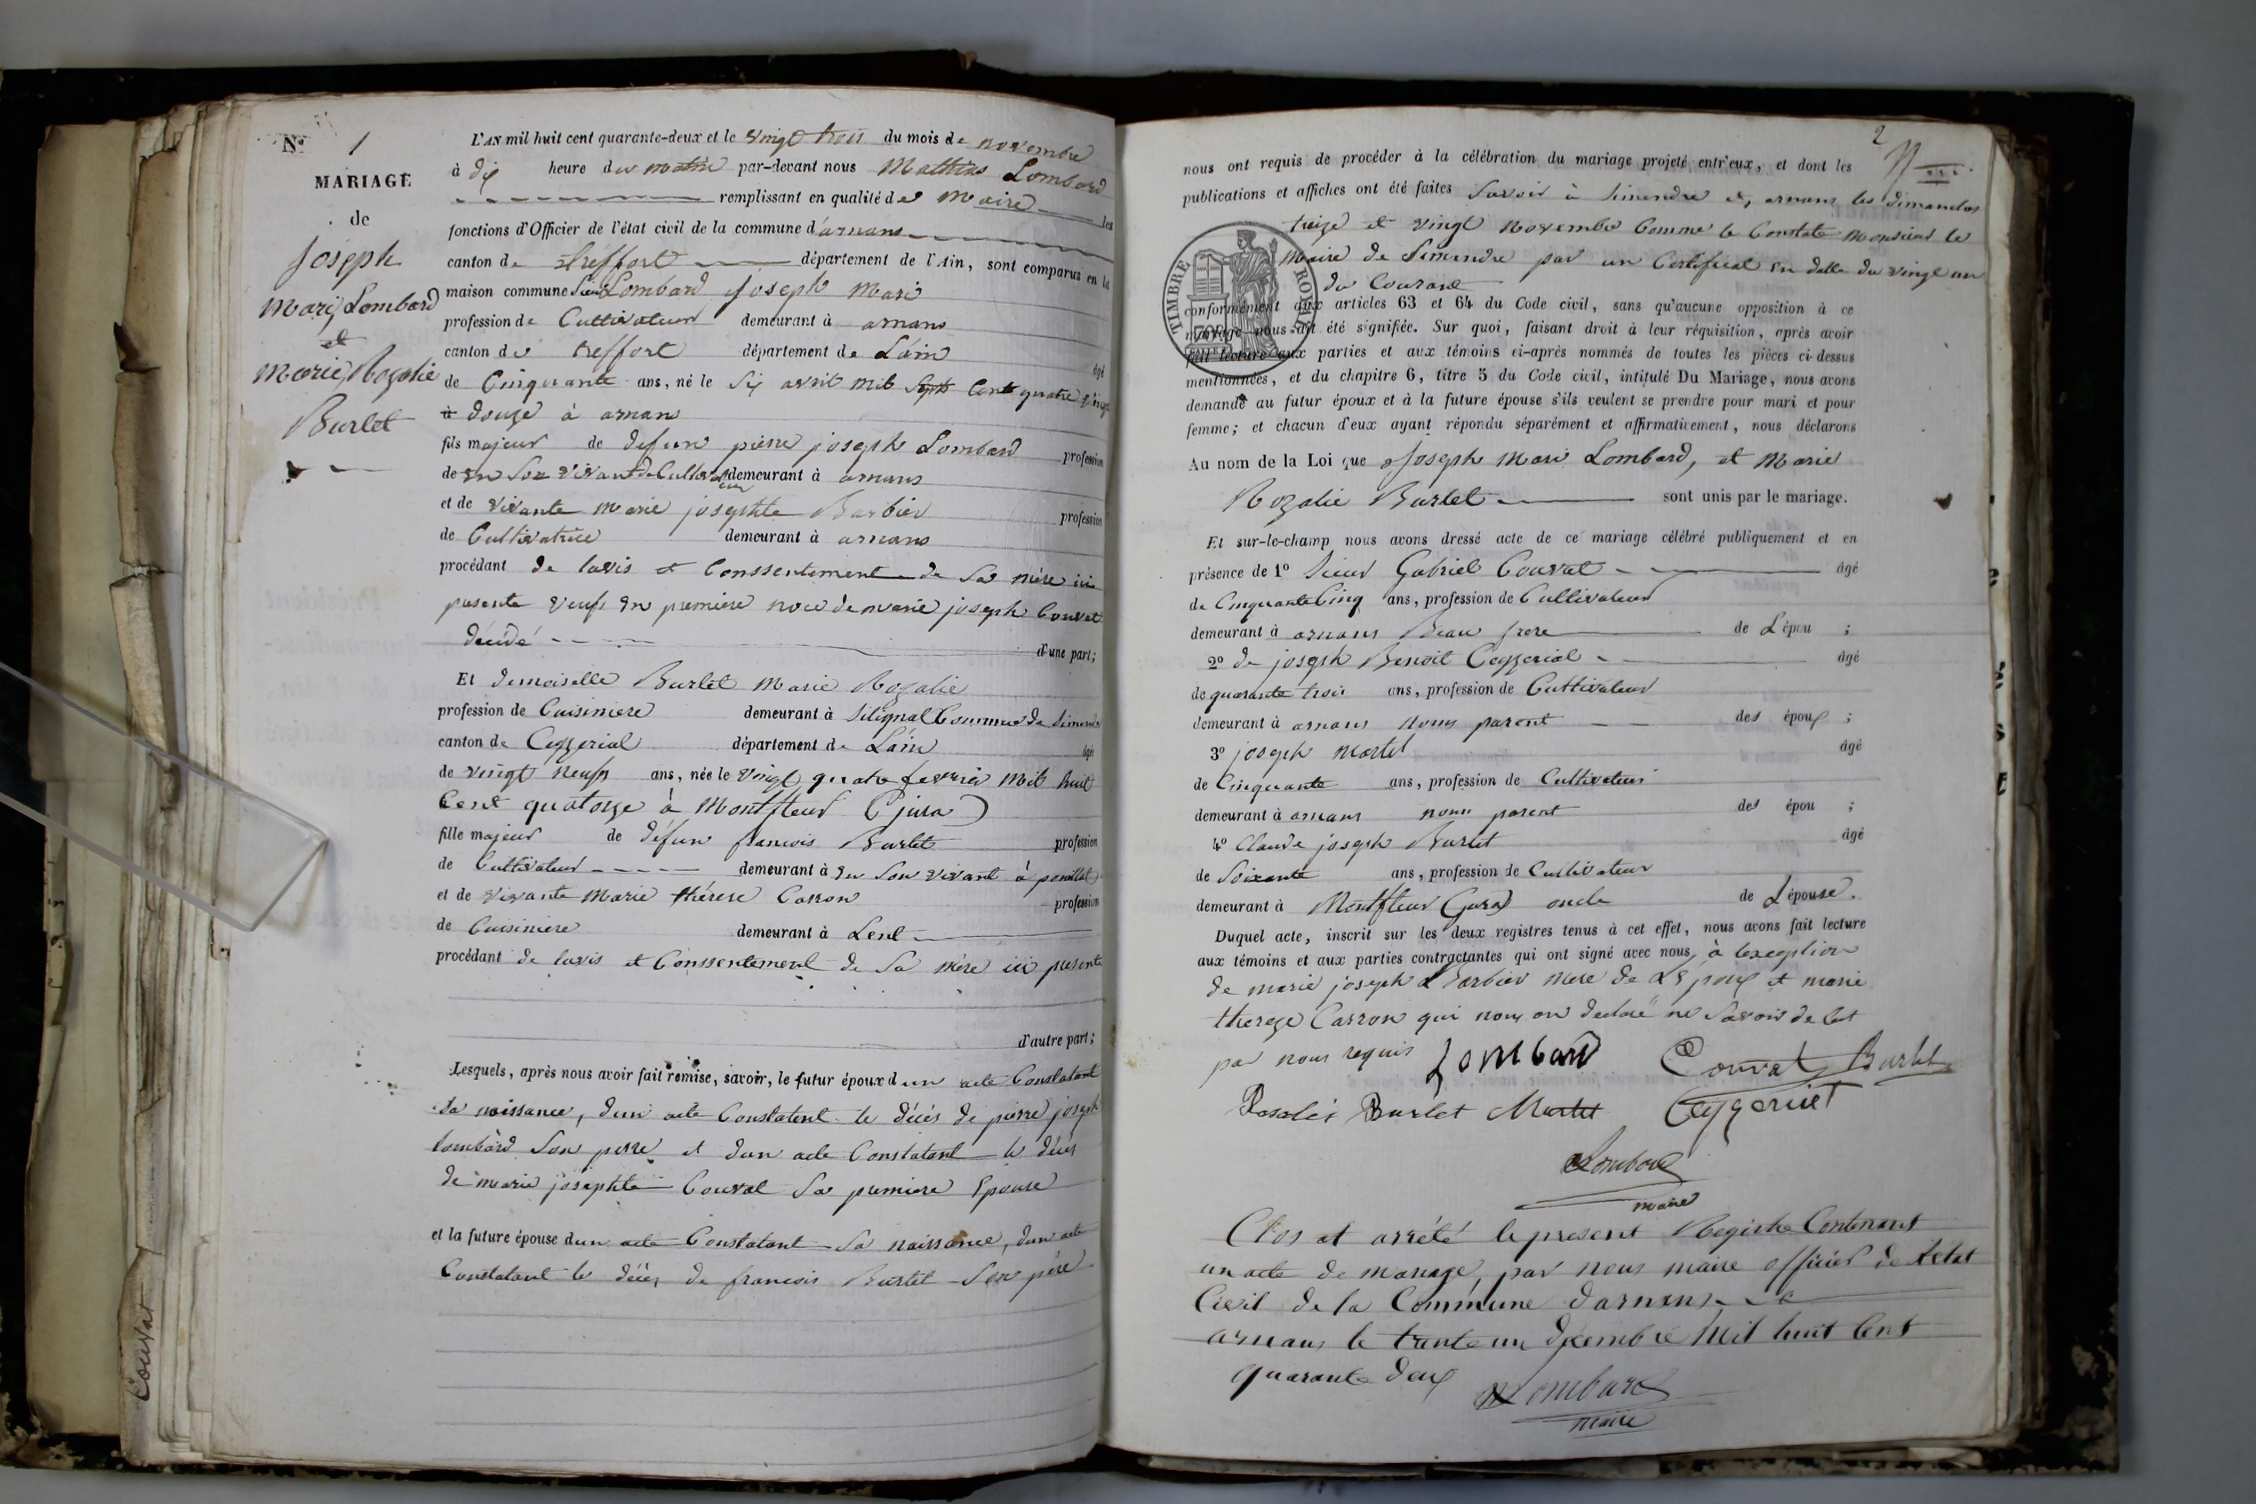 N° 1
MARIAGE
de
Joseph
Marij Lombard
et
Marie Rozalie
Burlet
L'AN mil huit cent quarante-deux et le vingt trois du mois de novembre
à dix heure du matin par-devant nous Mathias Lombard
remplissant en qualité de Maire les
fonctions d'Officier de l'état civil de la commune d'arnans
canton de tréffort département de l'Ain, sont comparus en la
maison commune Sieur Lombard Joseph Mari
profession de Cultivateur demeurant à arnans
canton de treffort département de L'ain âgé
de Cinquante ans, né le Six avril mil Sept Cent quatre vingt
douze à arnans
fils majeur de defun pierre joseph Lombard profession
de en Son vivant de Cultivateur demeurant à arnans
et de vivante Marie josephte Barbier profession
de Cultivatrice demeurant à arnans
procédant de lavis et Conssentement de Sa mére ici
presente veufs en premiere noce de marie joseph Couvat
décédé
d'une part;
Et demoiselle Burlet Marie Rozalie
profession de Cuisiniere demeurant à Silignat Commune de Simandre
canton de Ceyzeriat département de L'ain âgé
de vingt neufs ans, née le vingt quatre fevrier Mil huit
Cent quatorze à Montfleur (jura)
fille majeur de défun francois Burlet profession
de Cultivateur demeurant à en Son vivant à pouillat
et de vivante Marie thérese Carron profession
de Cuisiniere demeurant à Lent
procédant de lavis et Conssentement de Sa mére ici presente
d'autre part;
Lesquels, après nous avoir fait remise, savoir, le futur époux d'un acte Constatant
Sa naissance, d'un acte Constatent le décés de pierre joseph
Lombard Son perre et d'un acte Constatant le décés
de marie josephte Couvat Sa premiere Epouse
et la future épouse d'un acte Constatant Sa naissance, d'un acte
Constatant le décés de francois Burlet Son pére
Couvat
2
nous ont requis de procéder à la célébration du mariage projeté entr'eux, et dont les
publications et affiches ont été faites Savoir à Simandre et, arnans les dimanches
treize et vingt Novembre Comme le Constate Monsieur le
Maire de Simandre par un Certificat en datte du vingt un
du Courant
TIMBRE ROYAL
conformément aux articles 63 et 64 du Code civil, sans qu'aucune opposition à ce
mariage nous ait été signifiée. Sur quoi, faisant droit à leur réquisition, après avoir
fait lecture aux parties et aux témoins ci-après nommés de toutes les pièces ci-dessus
mentionnées, et du chapitre 6, titre 5 du Code civil, intitulé Du Mariage, nous avons
demandé au futur époux et à la future épouse s'ils veulent se prendre pour mari et pour
femme; et chacun d'eux ayant répondu séparément et affirmativement, nous déclarons
Au nom de la Loi que Joseph Mari Lombard, et Marie
Rozalie Burlet sont unis par le mariage.
Et sur-le-champ nous avons dressé acte de ce mariage célébré publiquement et en
présence de 1° Sieur Gabriel Couvat âgé
de Cinquante Cinq ans, profession de Cultivateur
demeurant à arnans Beau frere de L'épou ;
2° de joseph Benoit Ceyzeriat âgé
de quarante trois ans, profession de Cultivateur
demeurant à arnans nom parent des époux ;
3° joseph Martel âgé
de Cinquante ans, profession de Cultivateur
demeurant à arnans nom parent des épou ;
4° Claude joseph Burlet âgé
de Soixante ans, profession de Cultivateur
demeurant à Montfleur (jura) oncle de L'épouse.
Duquel acte, inscrit sur les deux registres tenus à cet effet, nous avons fait lecture
aux témoins et aux parties contractantes qui ont signé avec nous, à lexception
de marie joseph Barbier mere de L'Epoux et marie
thereze Carron qui nous on declaré ne Savoir de Cet
par nous requis Lombard Couvat Burlet
Rosalié Burlet Martel Ceyzeriat
Lombard
maire
Clos et arrété le present Registre Contenant
un acte de mariage, par nous maire officier de l'etat
Civil de la Commune d'arnans
arnans le trante un décembre Mil huit Cent
quarante deux Lombard
maire